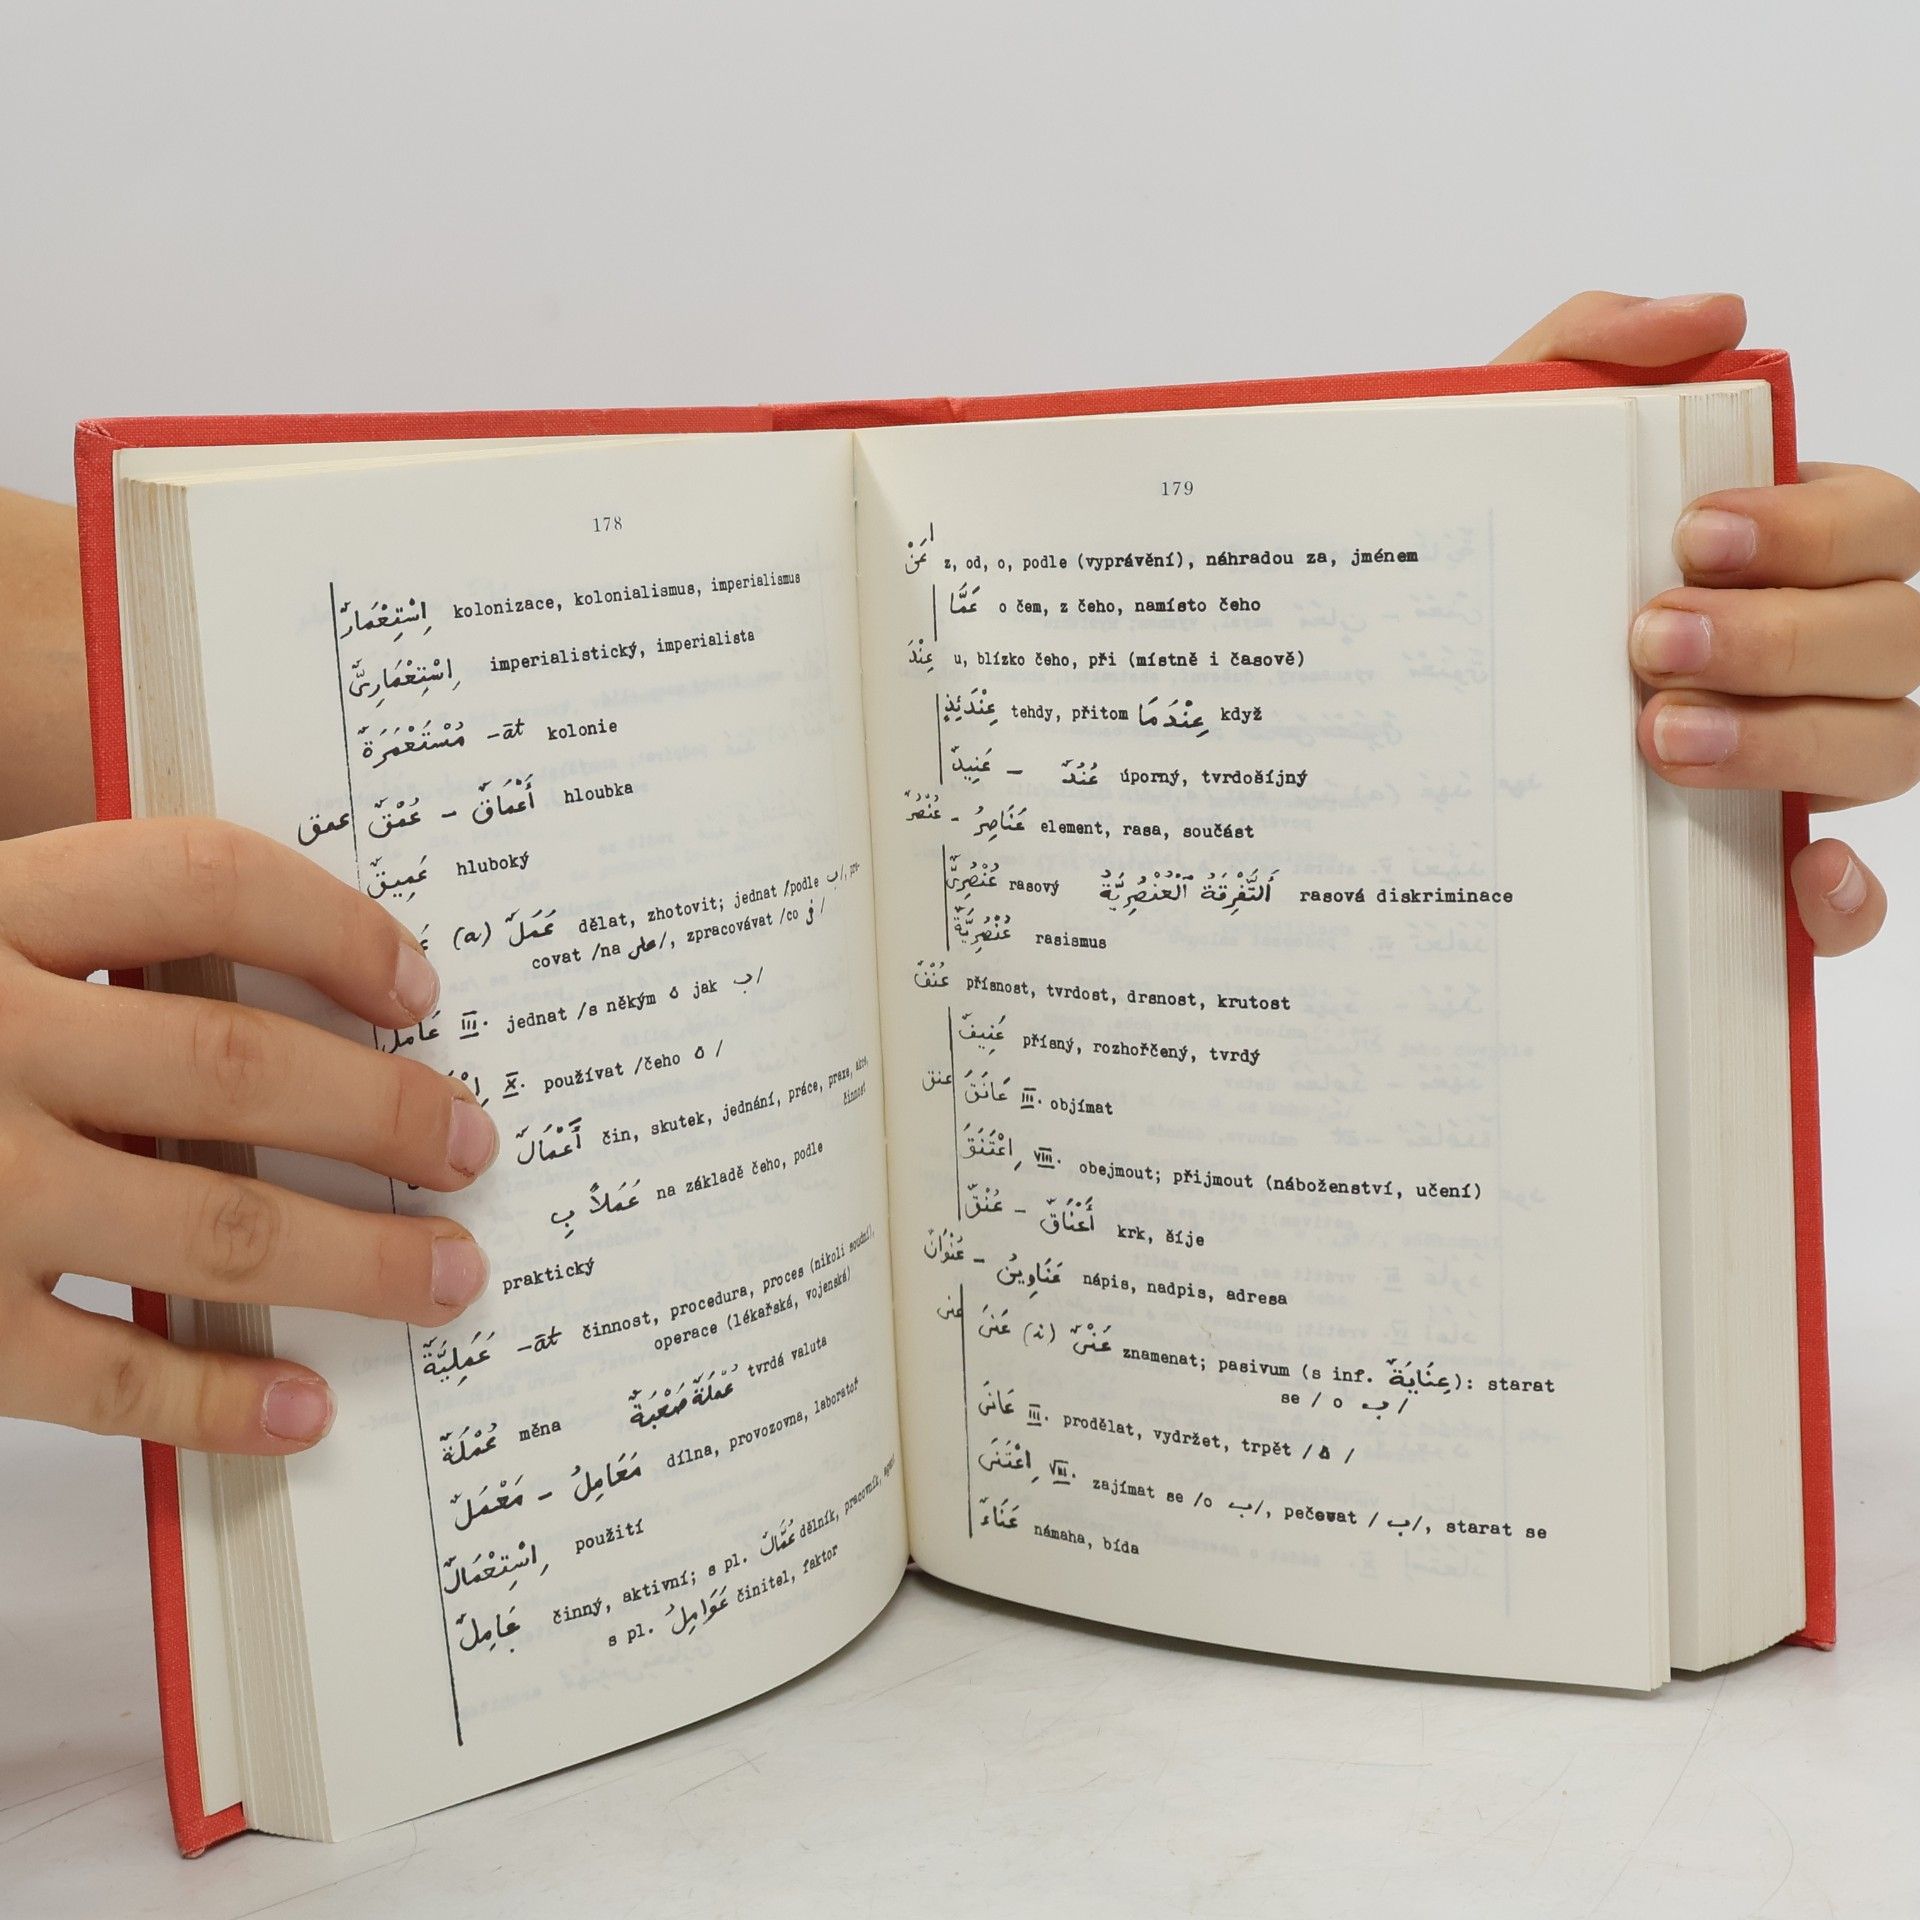 178
اِسْتِعْمَارٌ kolonizace, kolonialismus, imperialismus
اِسْتِعْمَارِىٌّ imperialistický, imperialista
مُسْتَعْمَرَةٌ –āt kolonie
عمق عُمْقٌ – أَعْمَاقٌ hloubka
عَمِيقٌ hluboký
(a) عَمَلٌ dělat, zhotovit; jednat /podle ب/, pra-
covat /na على/, zpracovávat /co فى /
عَامَلَ III. jednat /s někým ه jak ب/
X. používat /čeho ه /
أَعْمَالٌ čin, skutek, jednání, práce, praxe, akce,
činnost
عَمَلاً بِ na základě čeho, podle
praktický
عَمَلِيَّةٌ –āt činnost, procedura, proces (nikoli soudní),
operace (lékařská, vojenská)
عُمْلَةٌ měna عُمْلَةٌ صَعْبَةٌ tvrdá valuta
مَعْمَلٌ – مَعَامِلُ dílna, provozovna, laboratoř
اِسْتِعْمَالٌ použití
عَامِلٌ činný, aktivní; s pl. عُمَّالٌ dělník, pracovník,
s pl. عَوَامِلُ činitel, faktor
179
عَنْ z, od, o, podle (vyprávění), náhradou za, jménem
عَمَّا o čem, z čeho, namísto čeho
عِنْدَ u, blízko čeho, při (místně i časově)
عِنْدَئِذٍ tehdy, přitom عِنْدَمَا když
عَنِيدٌ – عُنُدٌ úporný, tvrdošíjný
عُنْصُرٌ – عَنَاصِرُ element, rasa, součást
عُنْصُرِىٌّ rasový اَلتَّفْرِقَةُ ٱلْعُنْصُرِيَّةُ rasová diskriminace
عُنْصُرِيَّةٌ rasismus
عُنْفٌ přísnost, tvrdost, drsnost, krutost
عَنِيفٌ přísný, rozhořčený, tvrdý
عنق عَانَقَ III. objímat
اِعْتَنَقَ VIII. obejmout; přijmout (náboženství, učení)
عُنْقٌ – أَعْنَاقٌ krk, šíje
عُنْوَانٌ – عَنَاوِينُ nápis, nadpis, adresa
عنى عَنَىَ (i) عَنْىٌ znamenat; pasivum (s inf. عِنَايَةٌ): starat
se / o ب /
عَانَىَ III. prodělat, vydržet, trpět / ه /
اِعْتَنَىَ VIII. zajímat se /o ب/, pečovat / ب/, starat se
عَنَاءٌ námaha, bída